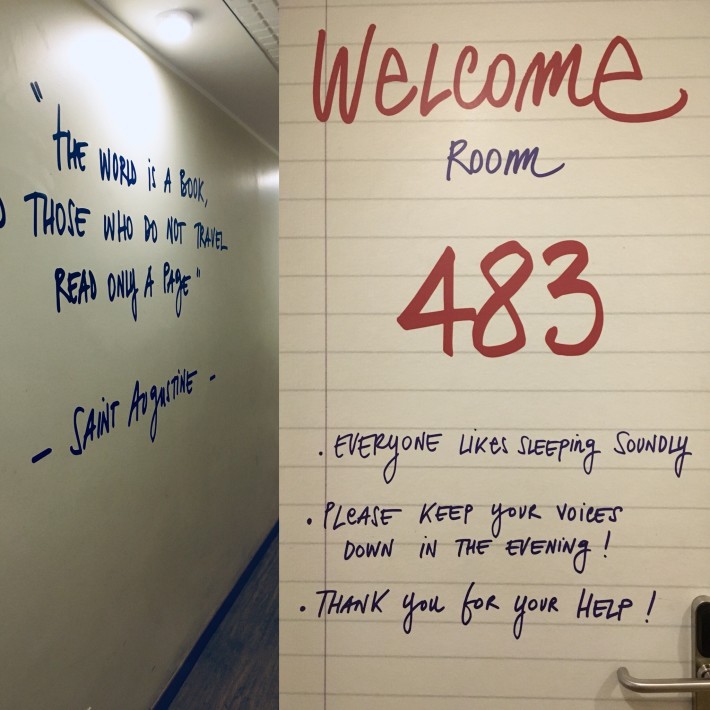 "THE WORLD iS A BOOK,
THOSE WHO DO NOT TRAVEL
READ ONLY A PAGE"
- SAiNT AUgUSTiNE -
WELCOME
ROOM
483
. EVERYONE LiKES SLEEPiNg SOUNDLY
. PLEASE KEEP YOUR VOiCES
DOWN iN THE EVENiNg!
. THANK YOU fOR YOUR HELP!